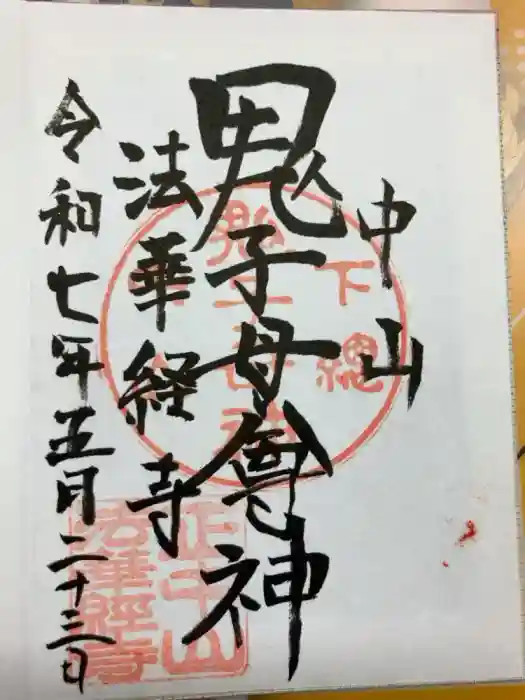 中山
鬼子母尊神
法華経寺
令和七年五月二十三日
下總
正中山
法華經寺